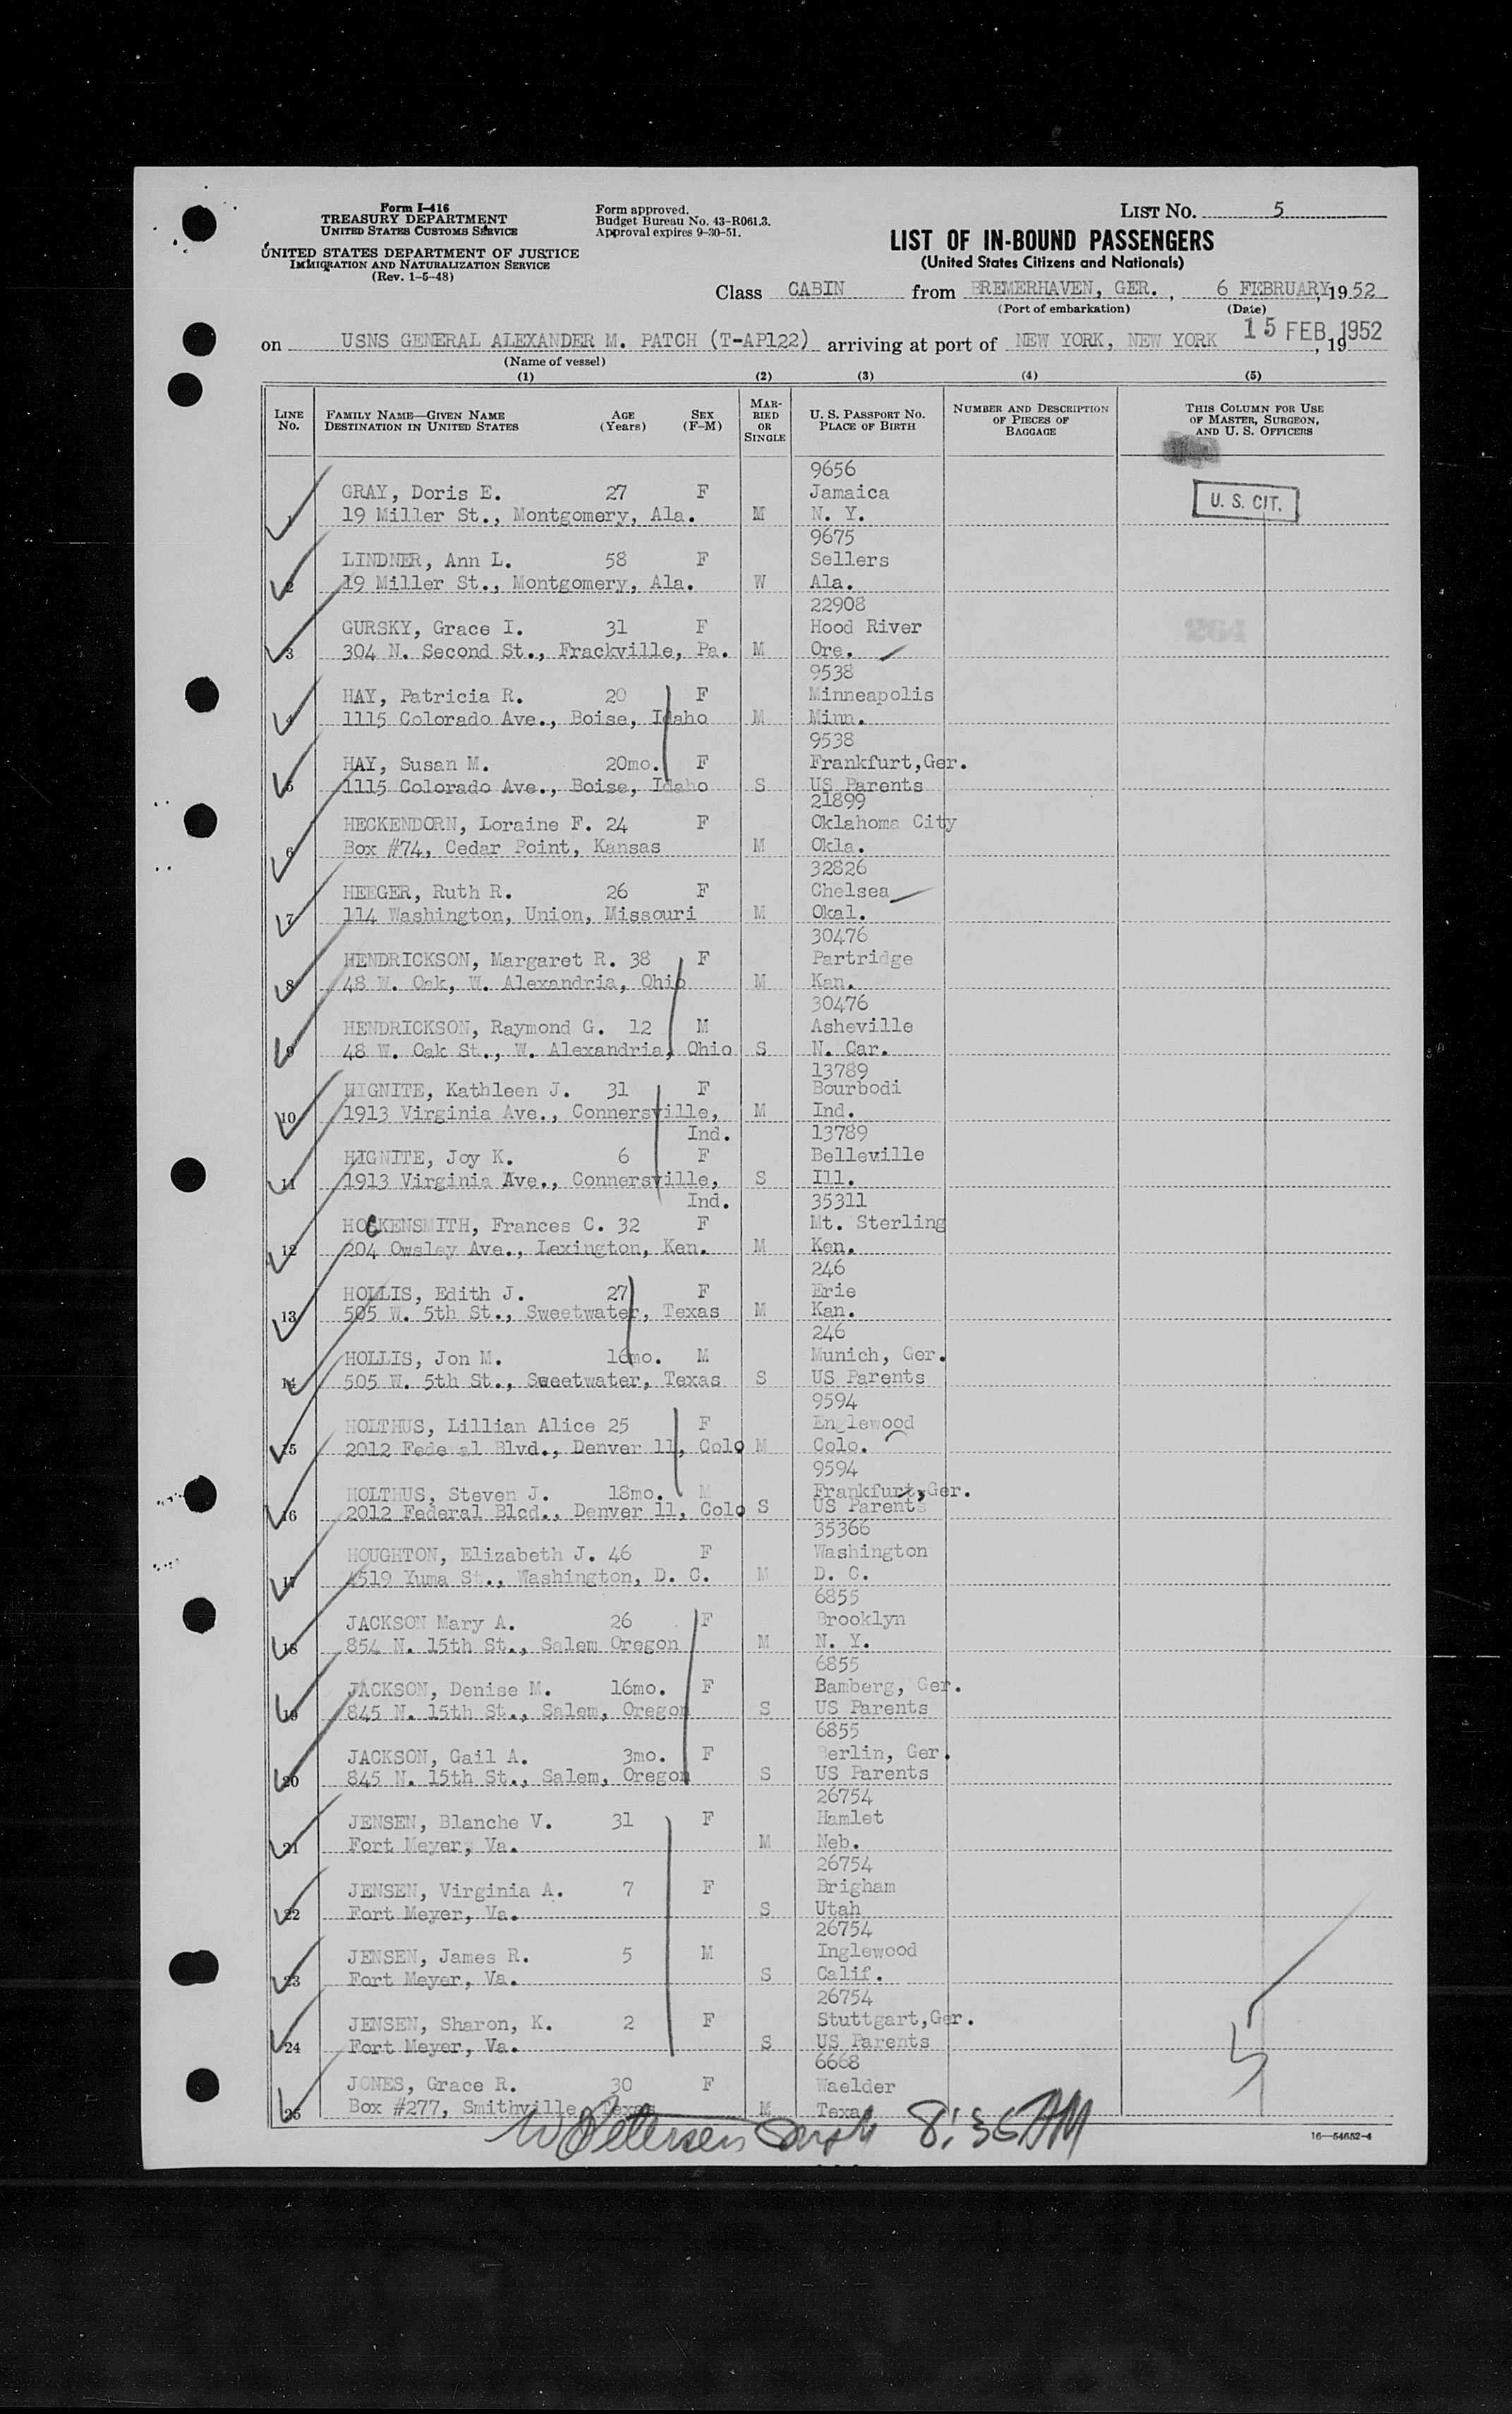 Form I-416
TREASURY DEPARTMENT
UNITED STATES CUSTOMS SERVICE
UNITED STATES DEPARTMENT OF JUSTICE
IMMIGRATION AND NATURALIZATION SERVICE
(Rev. 1-5-48)
Form approved.
Budget Bureau No. 43-R061.3.
Approval expires 9-30-51.
LIST NO. 5
LIST OF IN-BOUND PASSENGERS
(United States Citizens and Nationals)
Class CABIN from BREMERHAVEN, GER., 6 FEBRUARY, 1952
(Port of embarkation) (Date)
on USNS GENERAL ALEXANDER M. PATCH (T-AP122) arriving at port of NEW YORK, NEW YORK 15 FEB 1952, 19
(Name of vessel)
(1) (2) (3) (4) (5)
LINE No. FAMILY NAME—GIVEN NAME DESTINATION IN UNITED STATES AGE (Years) SEX (F-M) MARRIED OR SINGLE U. S. PASSPORT No. PLACE OF BIRTH NUMBER AND DESCRIPTION OF PIECES OF BAGGAGE THIS COLUMN FOR USE OF MASTER, SURGEON, AND U. S. OFFICERS
9656
GRAY, Doris E. 27 F Jamaica U. S. CIT.
1 19 Miller St., Montgomery, Ala. M N. Y.
9675
LINDNER, Ann L. 58 F Sellers
2 19 Miller St., Montgomery, Ala. W Ala.
22908
GURSKY, Grace I. 31 F Hood River
3 304 N. Second St., Frackville, Pa. M Ore.
9538
HAY, Patricia R. 20 F Minneapolis
4 1115 Colorado Ave., Boise, Idaho M Minn.
9538
HAY, Susan M. 20mo. F Frankfurt,Ger.
5 1115 Colorado Ave., Boise, Idaho S US Parents
21899
HECKENDORN, Loraine F. 24 F Oklahoma City
6 Box #74, Cedar Point, Kansas M Okla.
32826
HEEGER, Ruth R. 26 F Chelsea
7 114 Washington, Union, Missouri M Okal.
30476
HENDRICKSON, Margaret R. 38 F Partridge
8 48 W. Oak, W. Alexandria, Ohio M Kan.
30476
HENDRICKSON, Raymond G. 12 M Asheville
9 48 W. Oak St., W. Alexandria, Ohio S N. Car.
13789
HIGNITE, Kathleen J. 31 F Bourbodi
10 1913 Virginia Ave., Connersville, M Ind.
Ind. 13789
HIGNITE, Joy K. 6 F Belleville
11 1913 Virginia Ave., Connersville, S Ill.
Ind. 35311
HOCKENSMITH, Frances C. 32 F Mt. Sterling
12 204 Owsley Ave., Lexington, Ken. M Ken.
246
HOLLIS, Edith J. 27 F Erie
13 505 W. 5th St., Sweetwater, Texas M Kan.
246
HOLLIS, Jon M. 16mo. M Munich, Ger.
14 505 W. 5th St., Sweetwater, Texas S US Parents
9594
HOLTHUS, Lillian Alice 25 F Englewood
15 2012 Federal Blvd., Denver 11, Colo M Colo.
9594
HOLTHUS, Steven J. 18mo. M Frankfurt,Ger.
16 2012 Federal Blcd., Denver 11, Colo S US Parents
35366
HOUGHTON, Elizabeth J. 46 F Washington
17 4519 Yuma St., Washington, D. C. M D. C.
6855
JACKSON Mary A. 26 F Brooklyn
18 854 N. 15th St., Salem Oregon M N. Y.
6855
JACKSON, Denise M. 16mo. F Bamberg, Ger.
19 845 N. 15th St., Salem, Oregon S US Parents
6855
JACKSON, Gail A. 3mo. F Berlin, Ger.
20 845 N. 15th St., Salem, Oregon S US Parents
26754
JENSEN, Blanche V. 31 F Hamlet
21 Fort Meyer, Va. M Neb.
26754
JENSEN, Virginia A. 7 F Brigham
22 Fort Meyer, Va. S Utah
26754
JENSEN, James R. 5 M Inglewood
23 Fort Meyer, Va. S Calif.
26754
JENSEN, Sharon, K. 2 F Stuttgart,Ger.
24 Fort Meyer, Va. S US Parents
6668
JONES, Grace R. 30 F Waelder
25 Box #277, Smithville, Texas M Texa
W Petersen 8:36 AM
16—54652-4